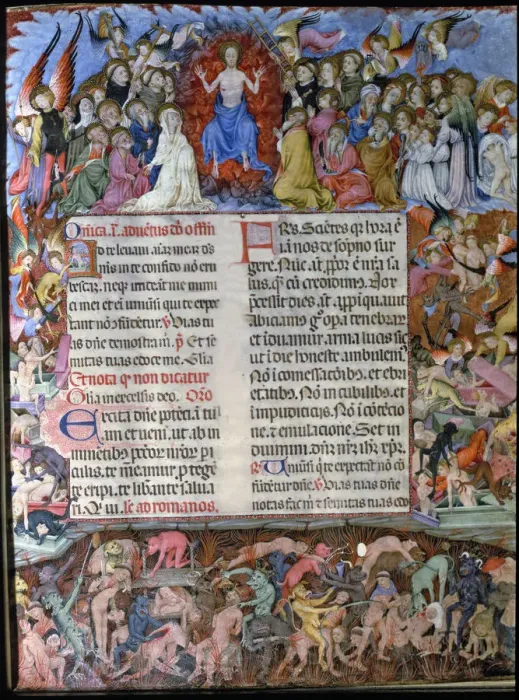 Dñica .I. aduentus dñi offm
Ad te leuaui aīaȝ meaȝ dˢ
mˢ in te confido nō eru
bescaȝ. neqȝ irrideāt me inimi
ci mei et eī uniūsi qui te expec
tant nōn cōfūdētur. v̄ Vias tu
as dñe demostra m̄. ps̄ Et se
mitas tuas edoce me. Glīa
Et nota qr non dicatur
Glīa in excelsis deo. Oro
Excita dñe potēciā tu
am et ueni. ut ab in
minētibus pctōr nrōr pi
culis. te meamur. ptegē
te eripi. te libante salua
ri. Qui. lc̄ ad romanos.
Frēs. Sciētes qr hora ē
iā nos de sōpno sur
gere. Nūc āt ppōr ē nrā sa
lus. qȝ cū credidimꝰ. Nox
pcessit dies āt. appiquauit
Abiciamꝰ gͦ opa tenebraȝ
et iduamur. arma lucis sic
ut ī die honeste ambulemꝰ
Nō ī comessacōibꝫ. et ebri
etatibꝫ. Nō in cubilibꝫ. et
īmpudiciciis. Nō ī cōtēcio
ne. ⁊ emulacione. Set in
duimini. dñȝ nr̄ȝ ihȝ xp̄ȝ.
℟ Uniūsi qͥ te expectāt nō cō
fūdētur dñe. v̄ Vias tuas dñe
notas fac m̄ ⁊ semitas tuas edo